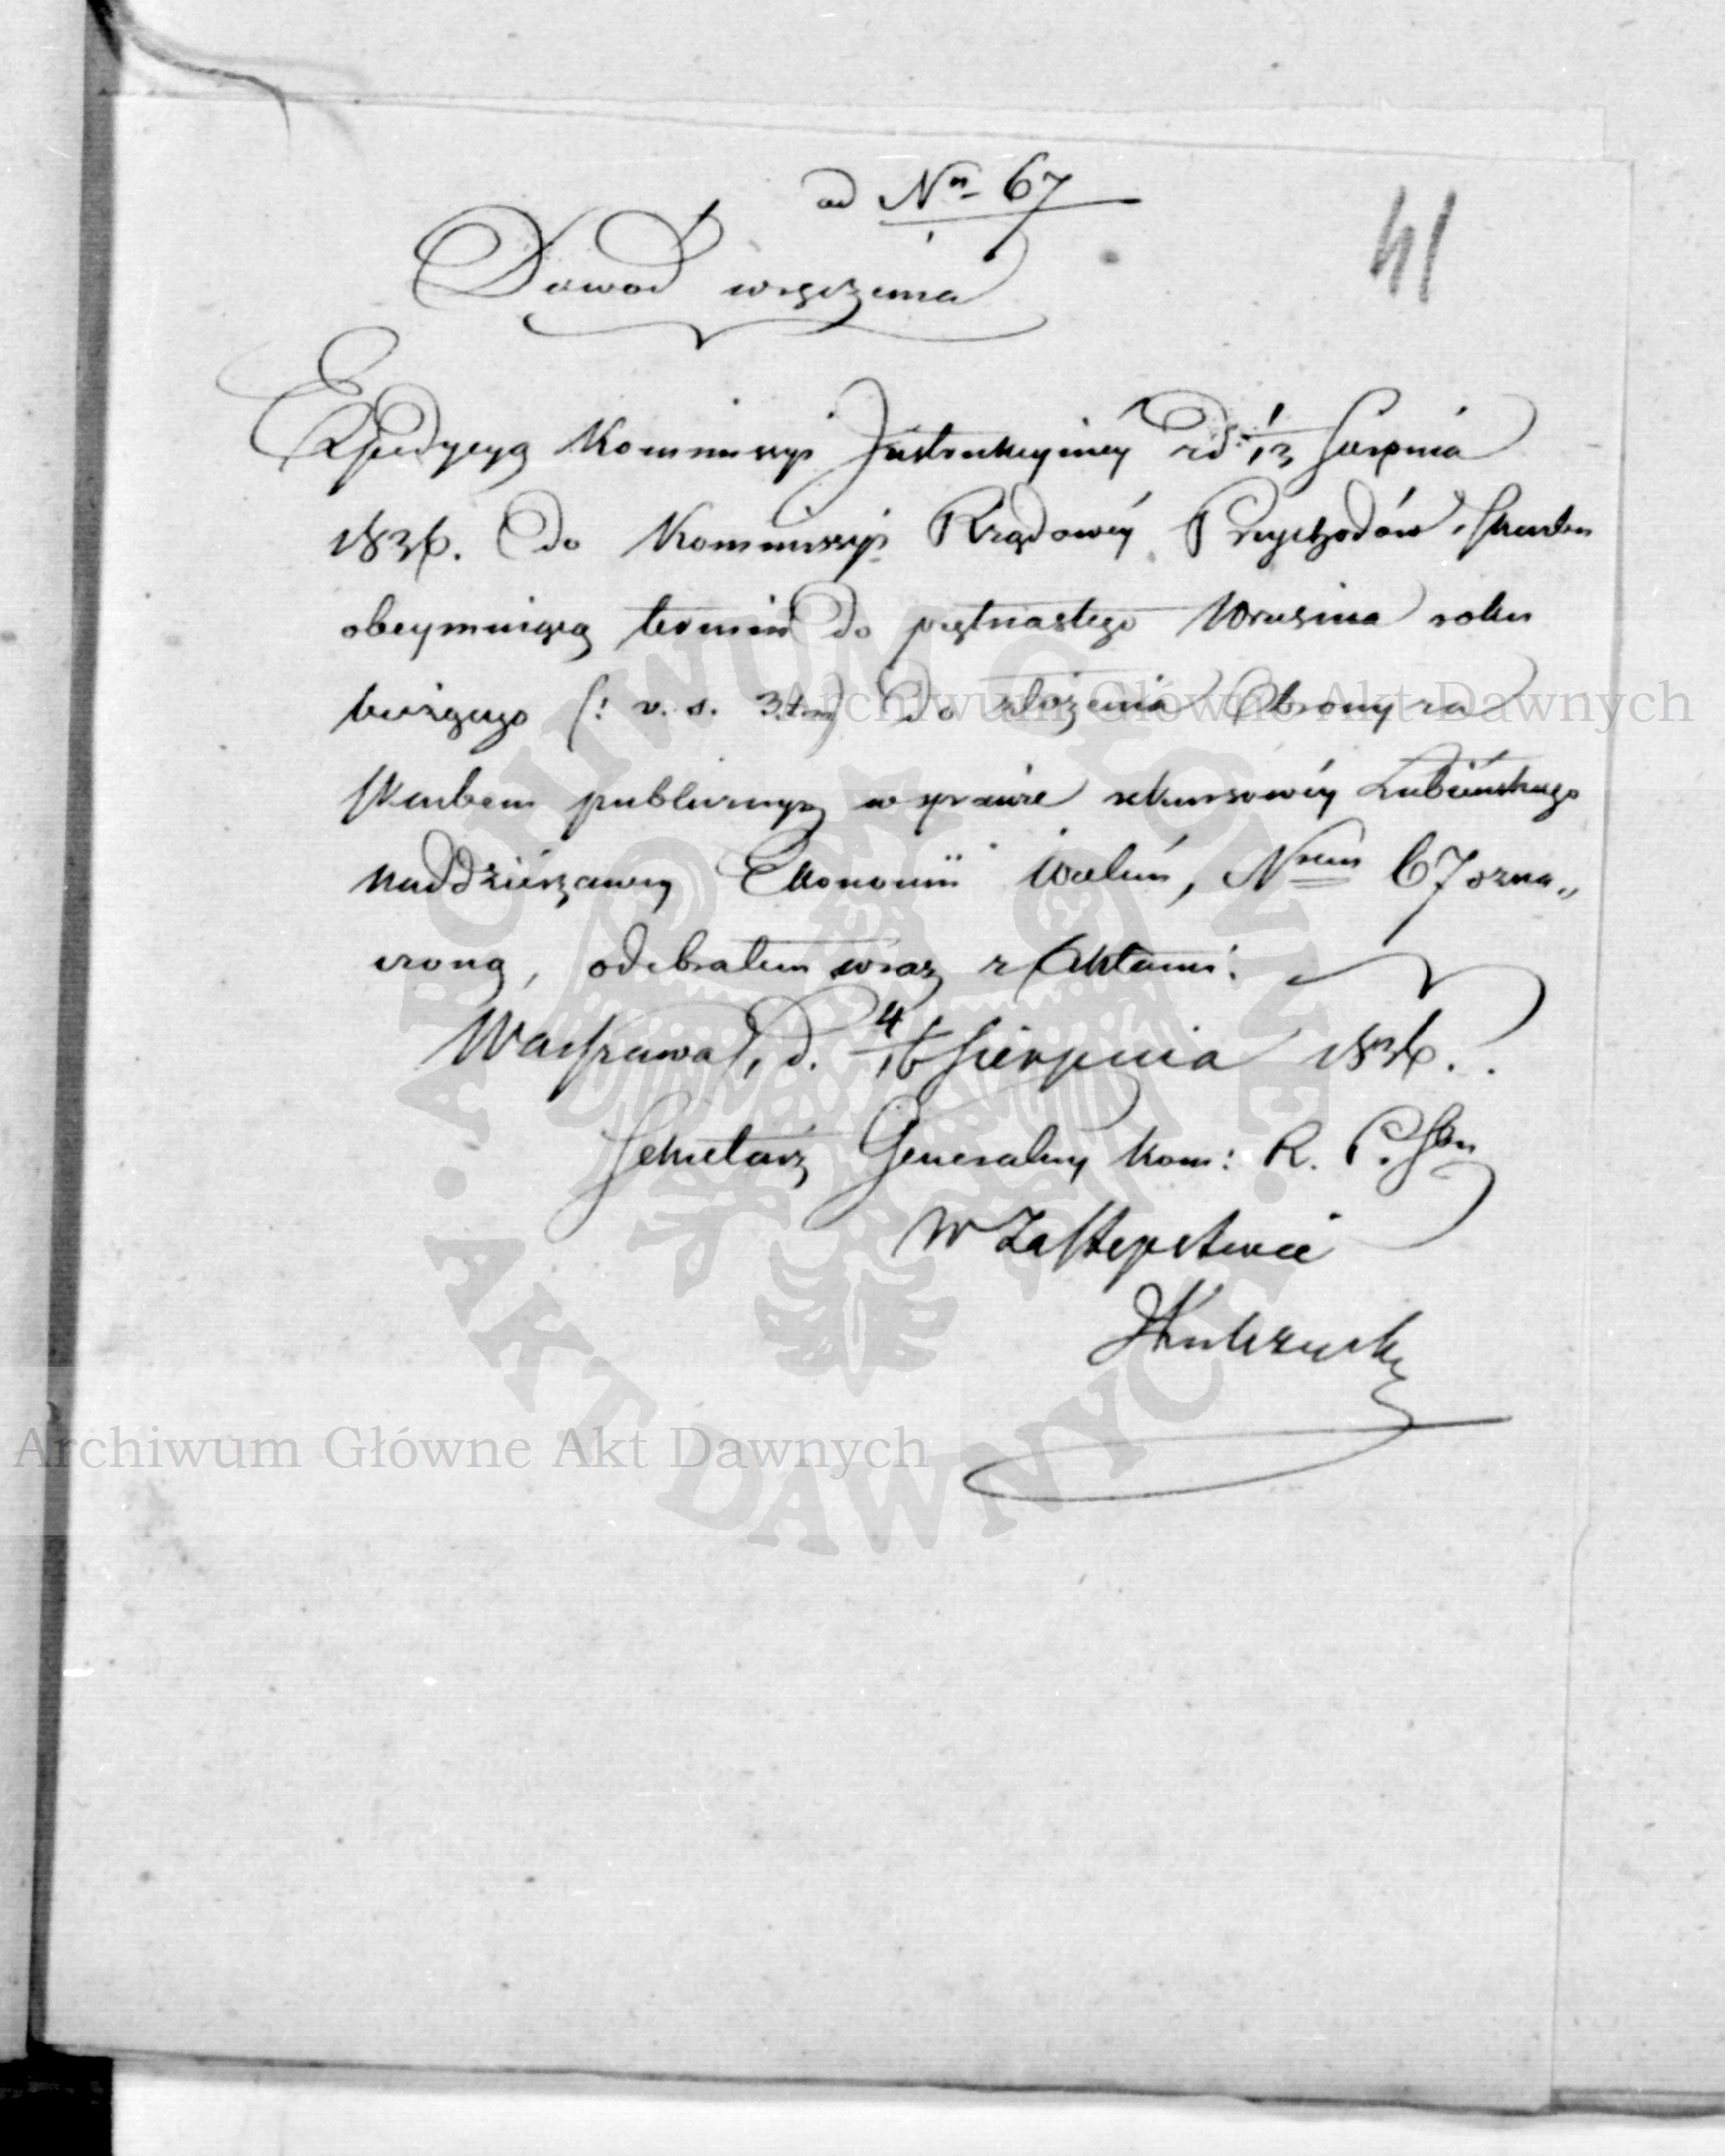 ad Nrn 67
41
Dowod wręczenia
Expedycyą Kommissyi Instrukcyiney z d. 1/13 Sierpnia
1836. do Kommissyi Rządowey Przychodów i Skarbu
obeymuiącą termin do piętnastego Wrzesnia roku
bieżącego (: v. s. 3. t. m.) do złożenia Obrony za
Skarbem publicznym w sprawie rekursowéy Lubińskiego
naddzierzawcy Ekonomii Wieluń, Nrem 67 ozna„
czoną, odebrałem wraz z Aktami.
Warszawa, d. 4/16 Sierpnia 1836.
Sekretarz Generalny Kom: R. P. Skar
W Zastępstwie
Archiwum Główne Akt Dawnych
Archiwum Główne Akt Dawnych
ARCHIWUM GŁÓWNE AKT DAWNYCH